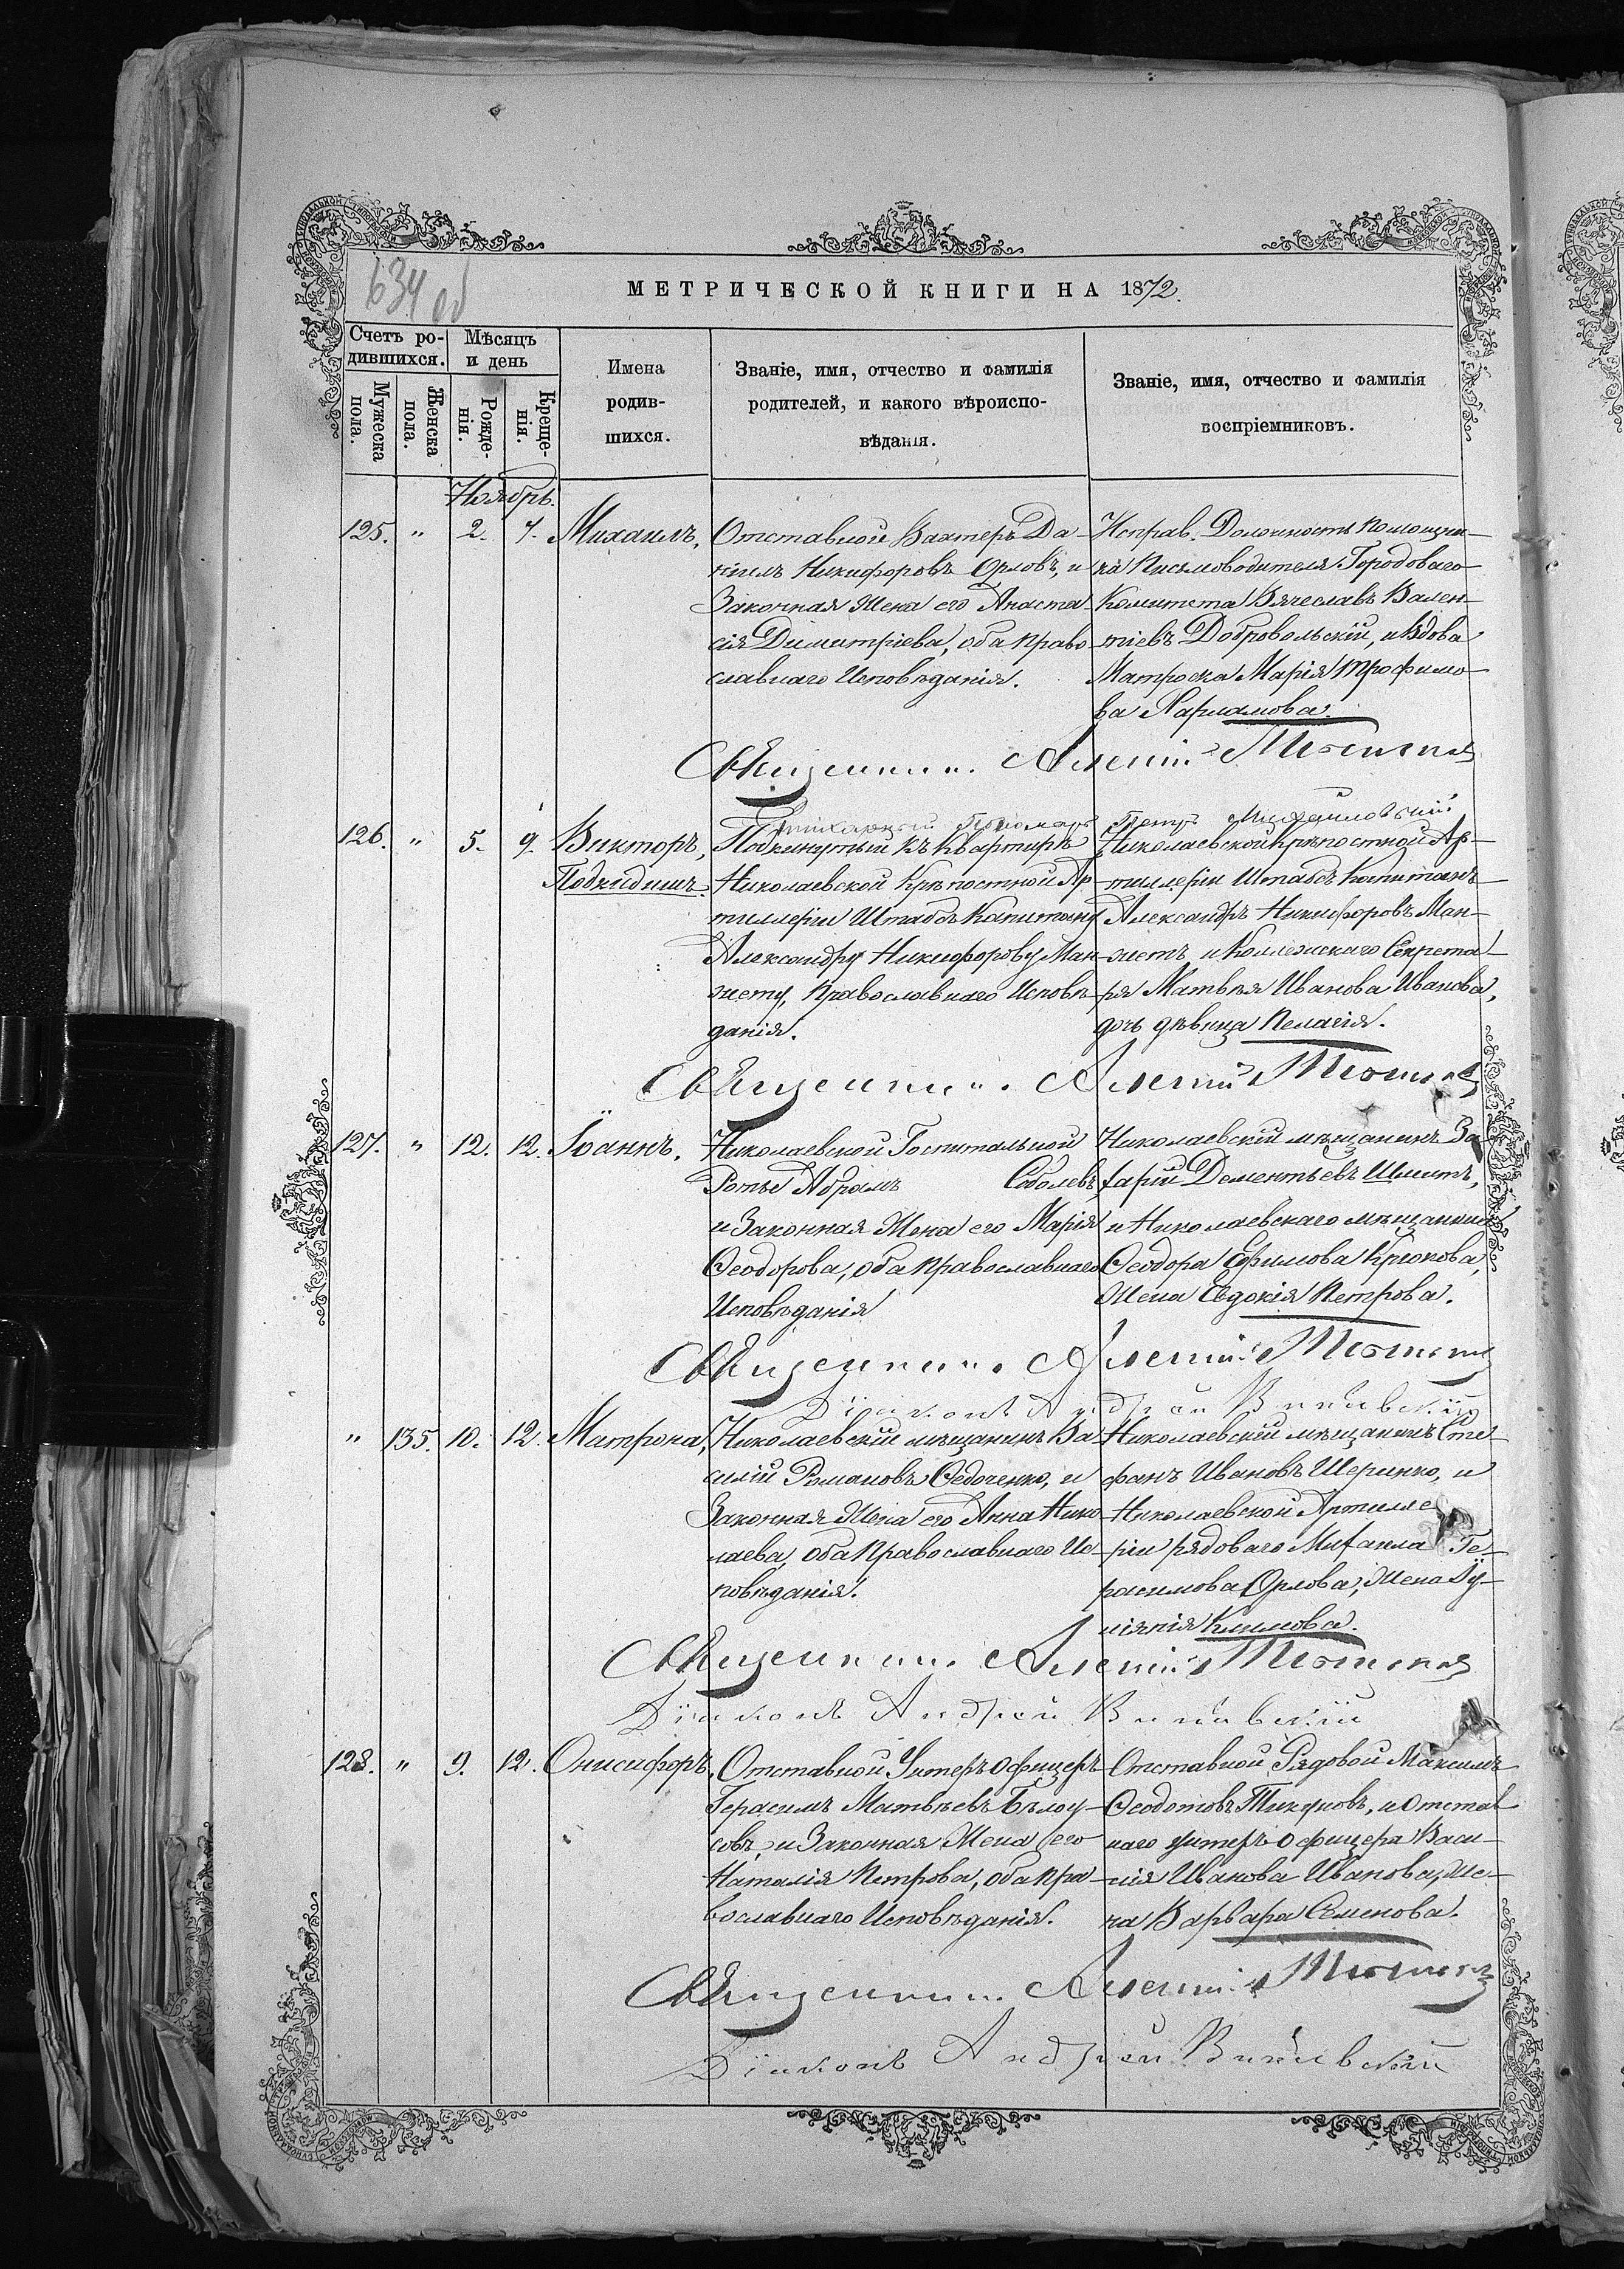 634 об
МЕТРИЧЕСКОЙ КНИГИ НА 1872.
Счетъ ро-
дившихся.
Мѣсяцъ
и день
Мужеска
пола.
Женска
пола.
Рожде-
нія.
Креще-
нія.
Имена
родив-
шихся.
Званіе, имя, отчество и фамилія
родителей, и какого вѣроиспо-
вѣданія.
Званіе, имя, отчество и фамилія
воспріемниковъ.
Ноябрь.
125. " 2. 7. Михаилъ,
Отставной Вахтеръ Да-
ніилъ Никифоровъ Орловъ, и
Законная Жена его Анаста-
сія Димитріева, оба право-
славнаго Исповѣданія.
Исправ. Должность помощни-
ка Письмоводителя Городоваго
Комитета Вячеславъ Вален-
тіевъ Добровольскій, и Вдова
Матроска Марія Трофимо-
ва Харламова.
Священникъ Алексій
Пономарь Петръ Михайловскій
126. " 5. 9. Викторъ,
Подкидышъ
Подкинутый къ квартирѣ
Николаевской Крѣпостной Ар-
тиллеріи Штабсъ Капитану
Александру Никифорову Ман-
жету, Православнаго Исповѣ-
данія.
Николаевской Крѣпостной Ар-
тиллеріи Штабсъ Капитанъ
Александръ Никифоровъ Ман-
жетъ и Коллежскаго Секрета-
ря Матвѣя Иванова Иванова,
дочь дѣвица Пелагія.
Священникъ Алексій
127. " 12. 12. Іоаннъ.
Николаевской Госпитальной
Роты Абрамъ Соболевъ,
и Законная Жена его Марія
Ѳеодорова, оба православнаго
Исповѣданія
Николаевскій мѣщанинъ За-
харій Дементьевъ Шмитъ,
и Николаевскаго мѣщанина
Ѳеодора Ефимова Крюкова,
Жена Евдокія Петрова.
Священникъ Алексій
Діаконъ Андрей
" 135. 10. 12. Матрона,
Николаевскій мѣщанинъ Ва-
силій Романовъ Ѳедоченко, и
Законная Жена его Анна Нико-
лаева, оба Православнаго Ис-
повѣданія.
Николаевскій мѣщанинъ Сте-
фанъ Ивановъ Шеринко, и
Николаевской Артилле-
ріи рядоваго Михаила Ге-
расимова Орлова, Жена Іу-
ліянія Климова.
Священникъ Алексій
Діаконъ Андрей
128. " 9. 12. Онисифоръ.
Отставной Унтеръ офицеръ
Герасимъ Матвѣевъ Бѣлоу-
совъ, и Законная Жена его
Наталія Петрова, оба пра-
вославнаго Исповѣданія.
Отставной Рядовой Максимъ
Ѳеодотовъ Тикуновъ, и Отстав
наго унтеръ офицера Васи-
лія Иванова Иванова, Же-
на Варвара Семенова.
Священникъ Алексій
Діаконъ Андрей